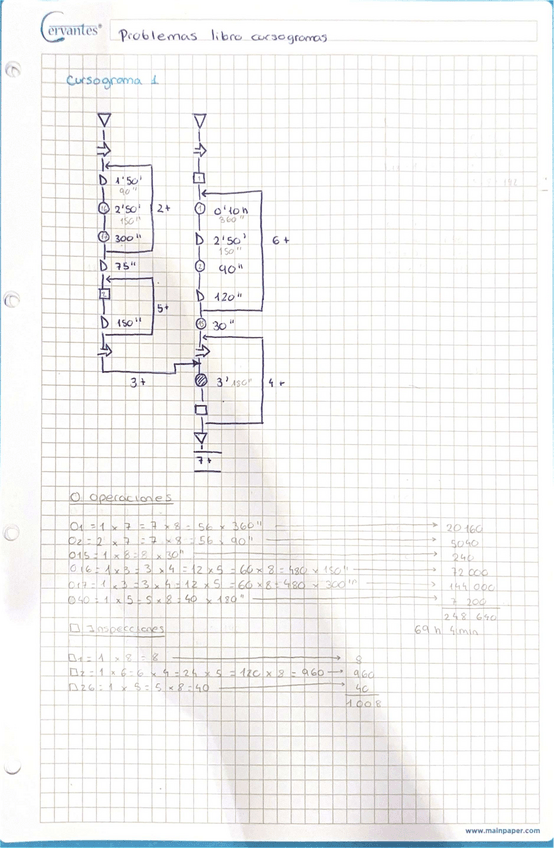 Cervantes®
Problemas libro cursogramas
Cursograma 1
1'50'
90"
2'50'
150"
2+
300"
75"
5+
150"
3+
0'10h
360"
2'50'
150"
6+
90"
120"
30"
3' 180"
4+
7+
O. Operaciones
O1 = 1 x 7 = 7 x 8 = 56 x 360" 20160
O2 = 2 x 7 = 7 x 8 = 56 x 90" 5040
O15 = 1 x 8 = 8 x 30" 240
O16 = 1 x 3 = 3 x 4 = 12 x 5 = 60 x 8 = 480 x 150" 72 000
O17 = 1 x 3 = 3 x 4 = 12 x 5 = 60 x 8 = 480 x 300" 144 000
O40 = 1 x 5 = 5 x 8 = 40 x 180" 7 200
248 640
69 h 4min
□. Inspecciones
□1 = 1 x 8 = 8 8
□2 = 1 x 6 = 6 x 4 = 24 x 5 = 120 x 8 = 960 960
□26 = 1 x 5 = 5 x 8 = 40 40
1.008
www.mainpaper.com